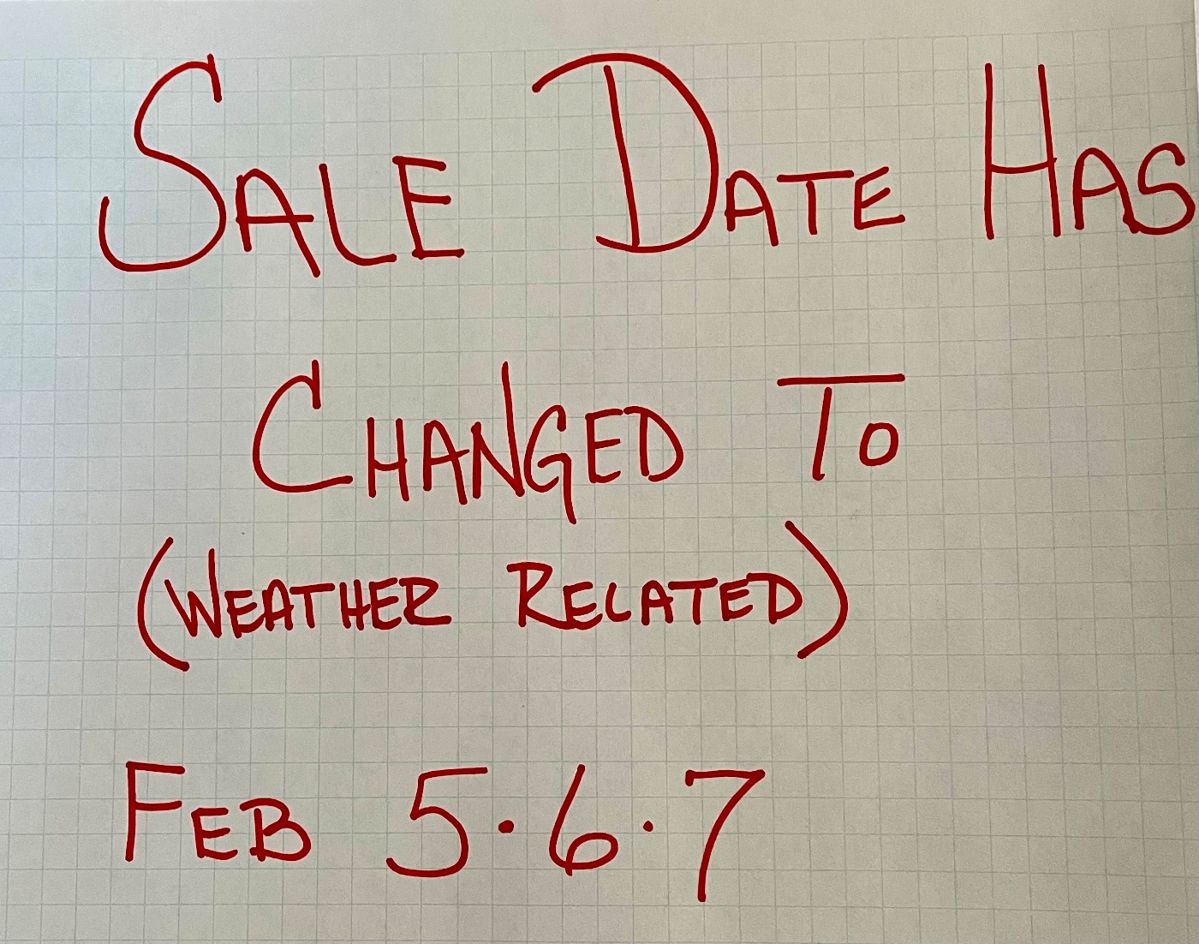 SALE DATE HAS
CHANGED TO
(WEATHER RELATED)
FEB 5·6·7